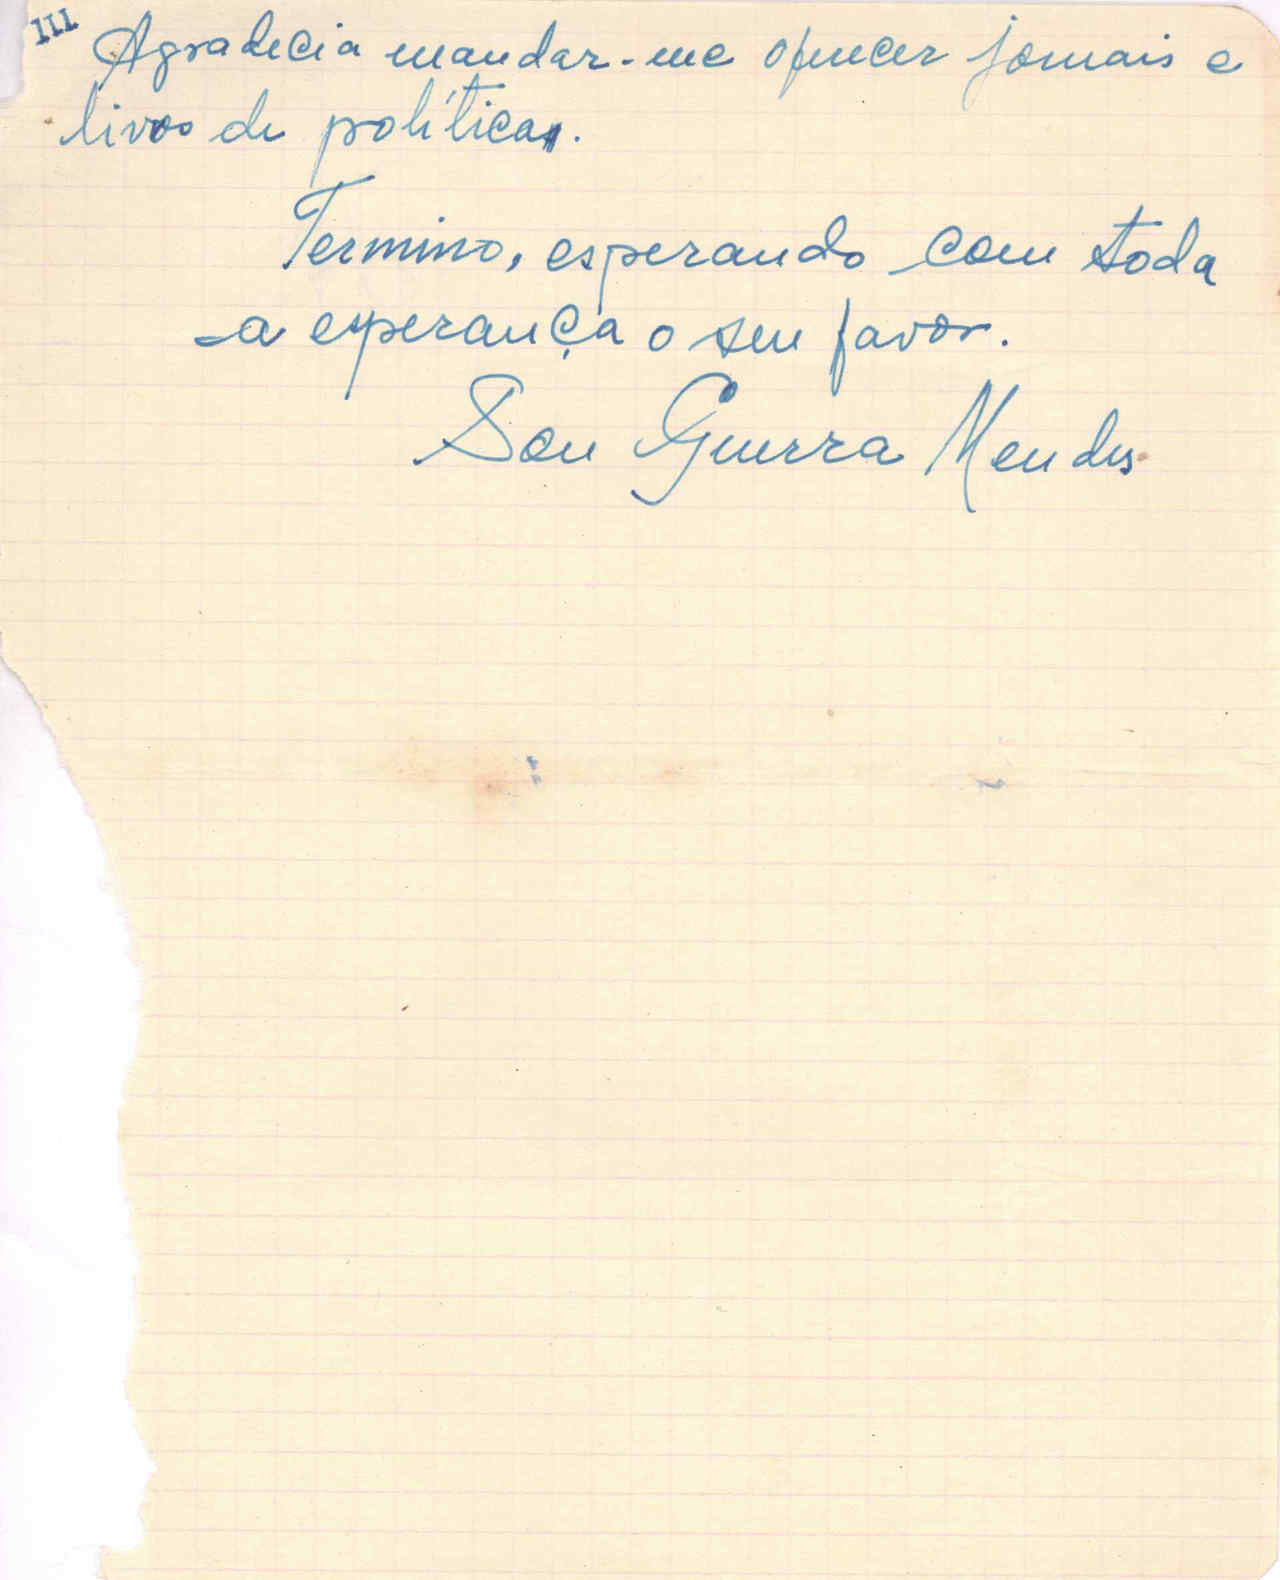 III
Agradecia mandar-me oferecer jornais e
livros de política.
Termino, esperando com toda
a esperança o seu favor.
Sou Guerra Mendes